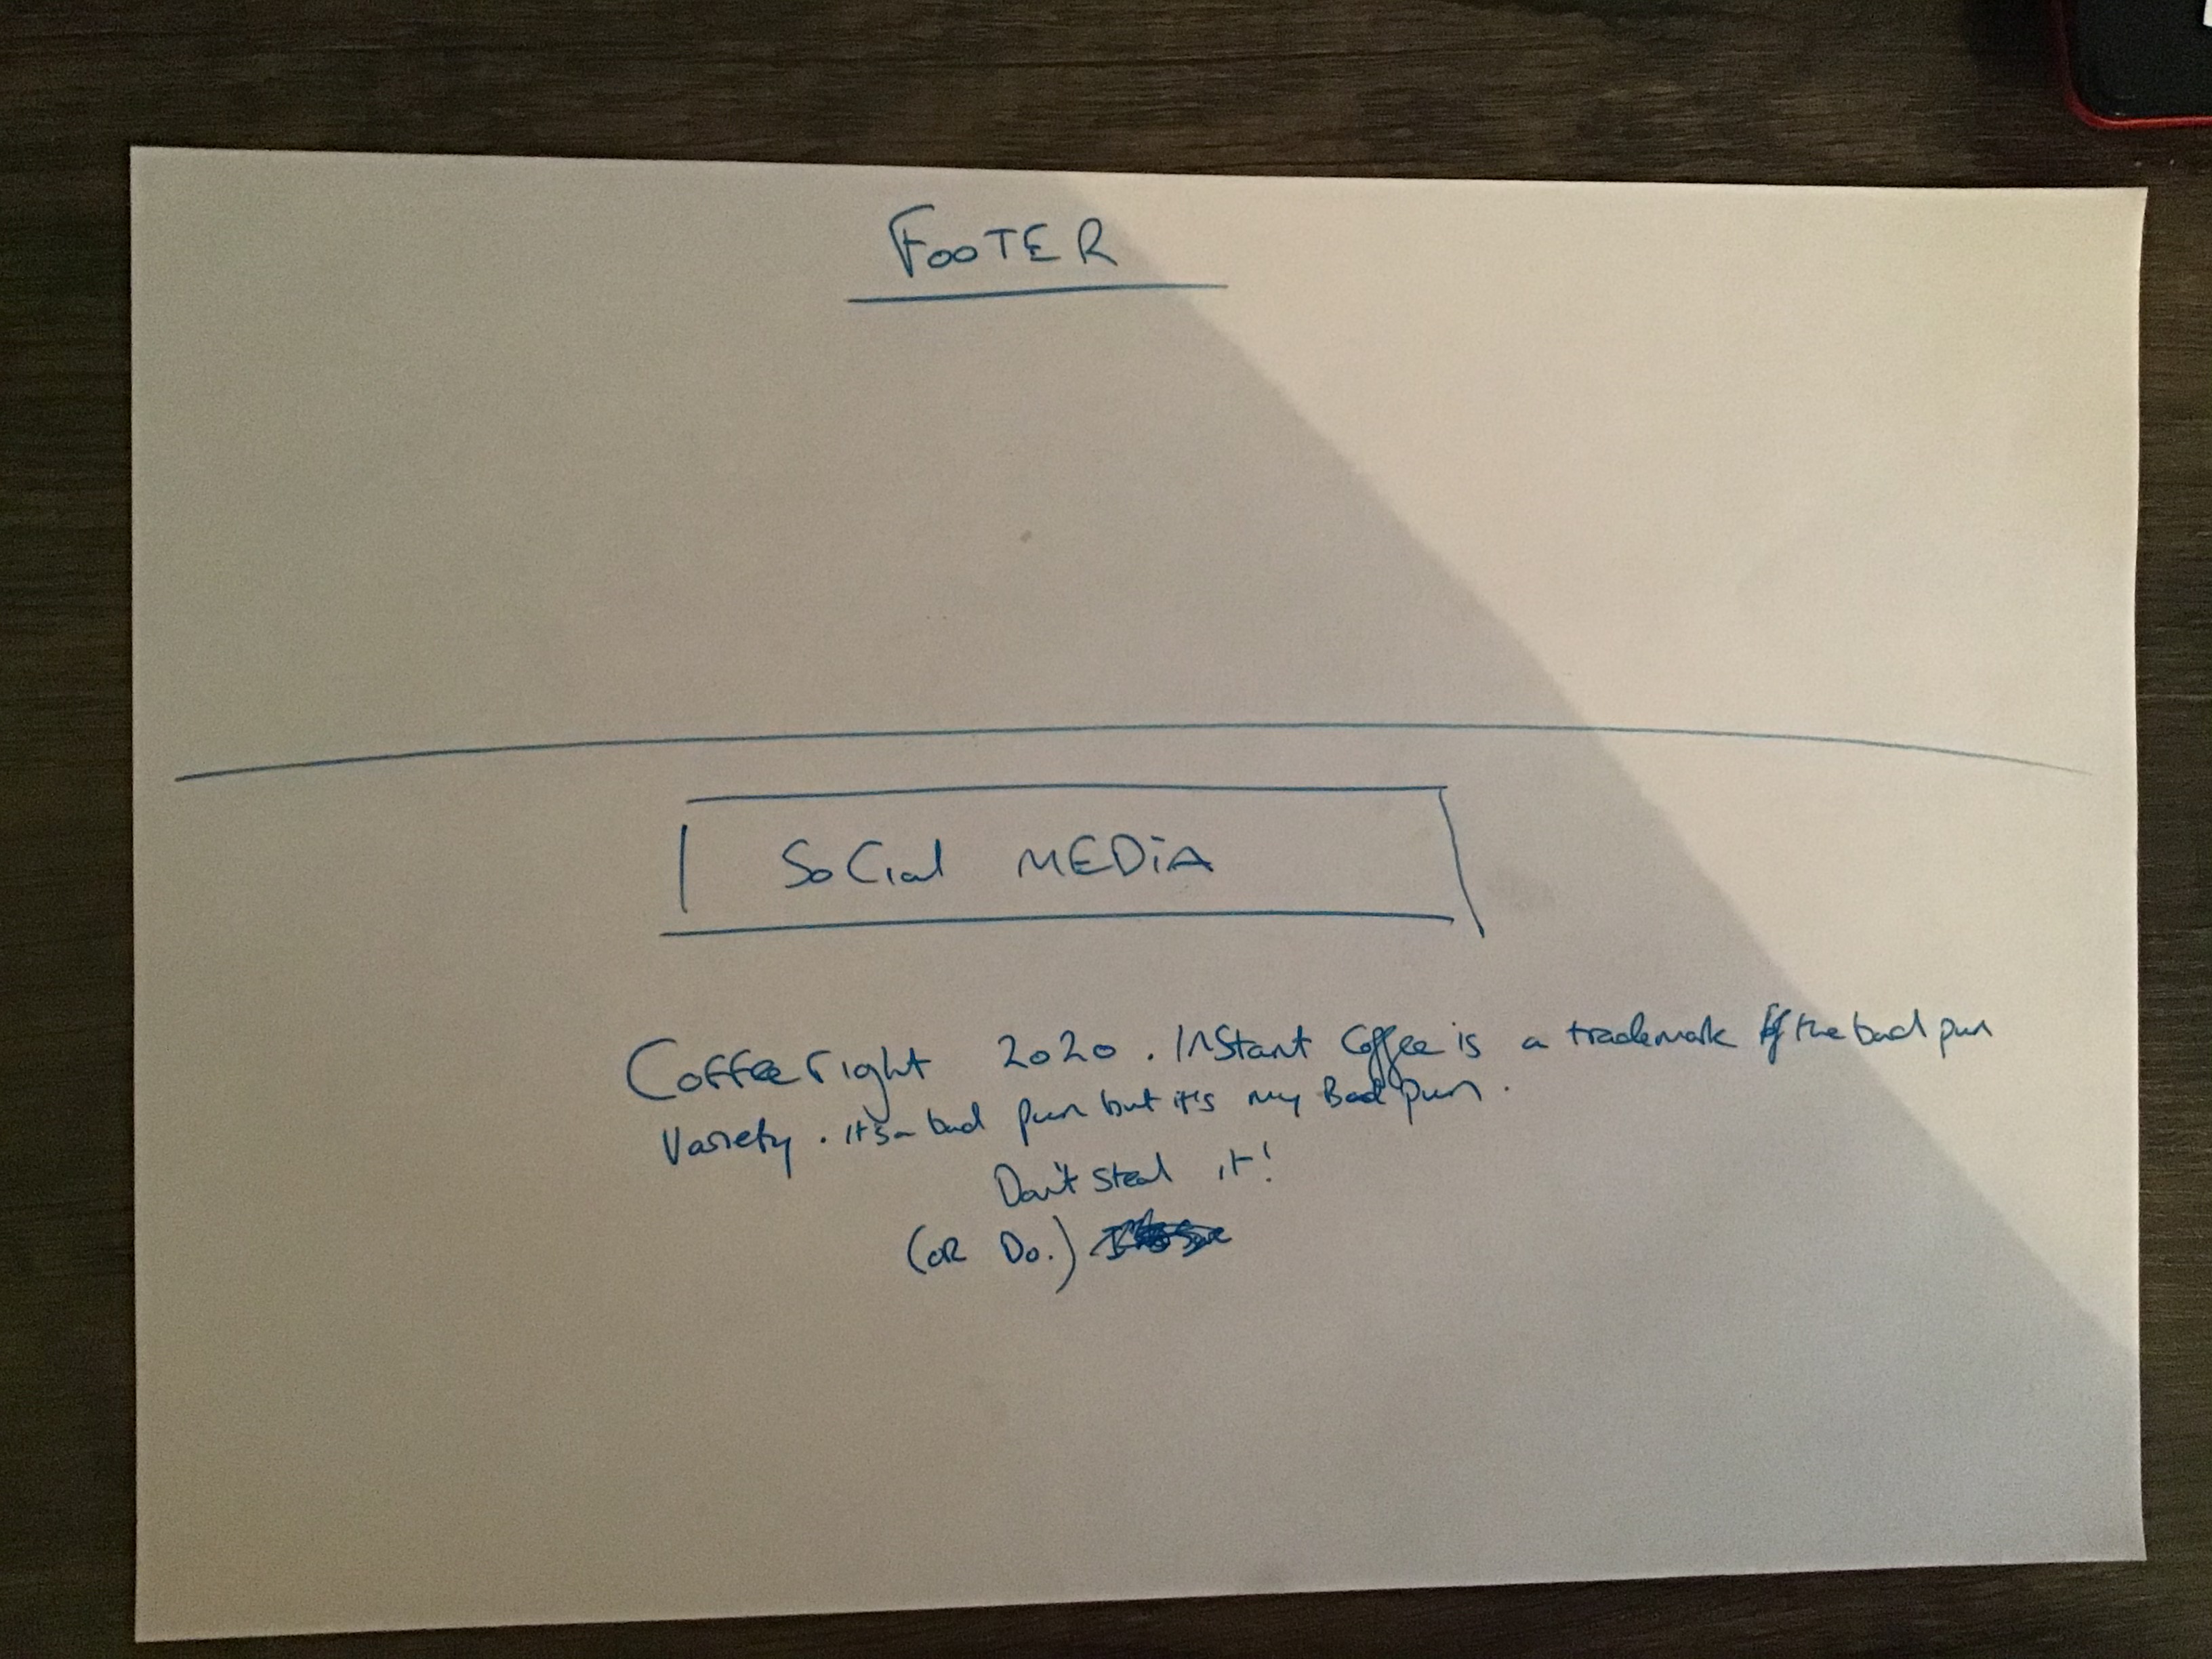 FOOTER
Social MEDiA
Coffeeright 2020. Instant Coffee is a trademark of the bad pun
Variety. it's a bad pun but it's my Bad pun.
Don't steal it!
(OR Do.)